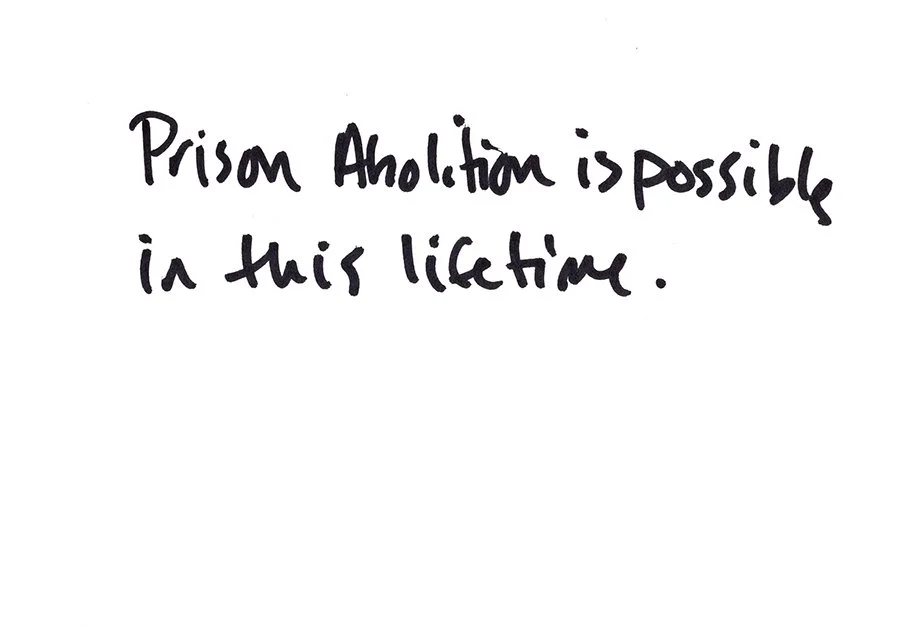 Prison Abolition is possible
in this lifetime.